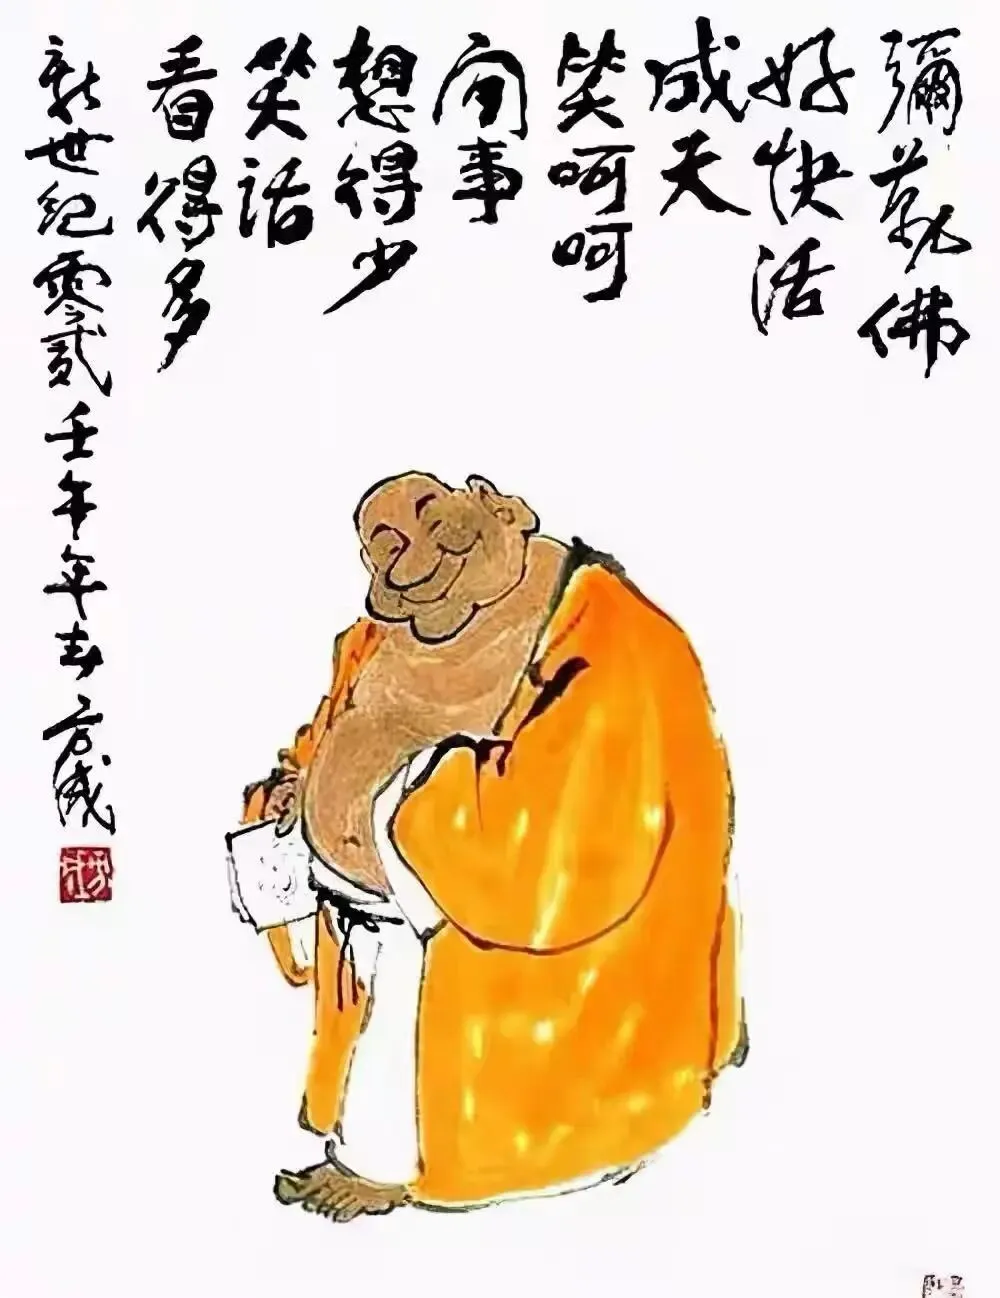 彌勒佛
好快活
成天
笑呵呵
闲事
想得少
笑話
看得多
新世紀零贰壬午年方成